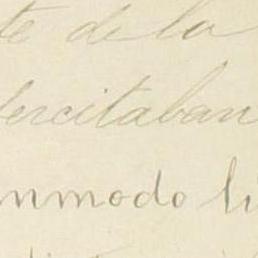 te de la
ercitaban
mmodo li